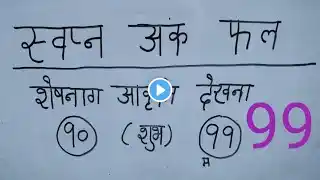 स्वप्न अंक फल
शेषनाग आकृति देखना
९० (शुभ) ९९ 99
म